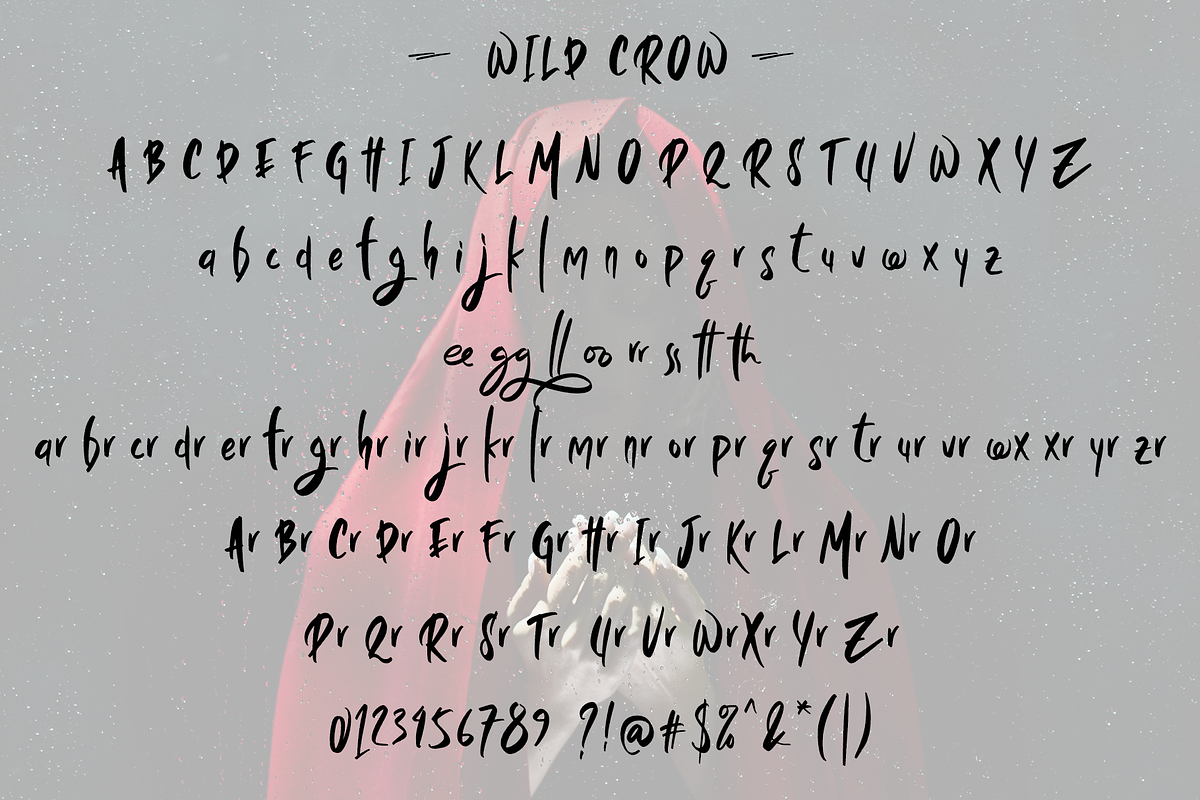 — WILD CROW —
A B C D E F G H I J K L M N O P Q R S T U V W X Y Z
a b c d e f g h i j k l m n o p q r s t u v w x y z
ee gg ll oo rr ss tt th
ar br cr dr er fr gr hr ir jr kr lr mr nr or pr qr sr tr ur vr wx xr yr zr
Ar Br Cr Dr Er Fr Gr Hr Ir Jr Kr Lr Mr Nr Or
Pr Qr Rr Sr Tr Ur Vr Wr Xr Yr Zr
0123456789 ?!@#$%^&*(|)